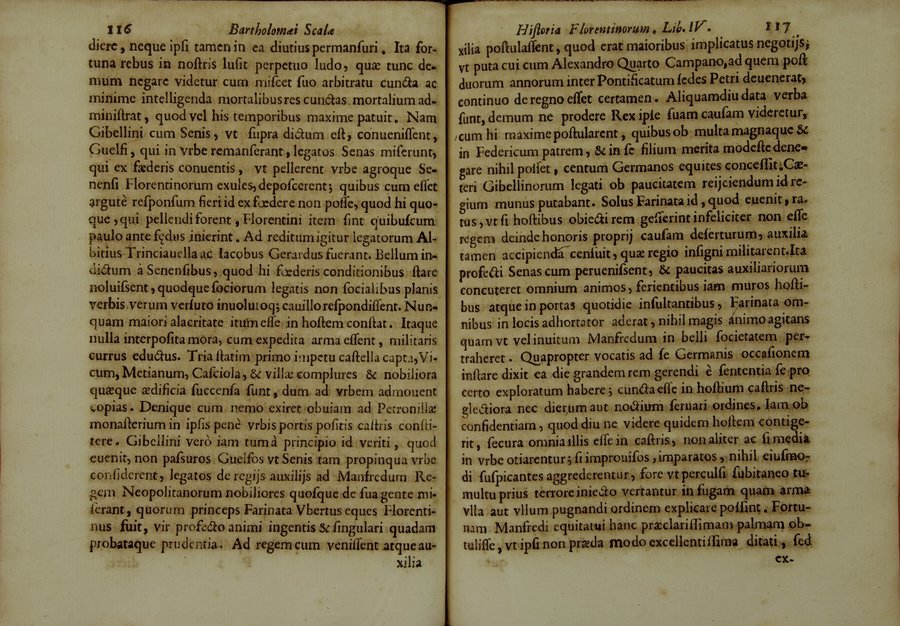 116 Bartholomæi Scalæ
diere, neque ipſi tamen in ea diutius permanſuri. Ita for-
tuna rebus in noſtris luſit perpetuo ludo, quæ tunc de-
mum negare videtur cum miſcet ſuo arbitratu cuncta ac
minime intelligenda mortalibus res cunctas mortalium ad-
miniſtrat, quod vel his temporibus maxime patuit. Nam
Gibellini cum Senis, vt ſupra dictum eſt, conueniſſent,
Guelfi, qui in vrbe remanſerant, legatos Senas miſerunt,
qui ex fæderis conuentis, vt pellerent vrbe agroque Se-
nenſi Florentinorum exules, depoſcerent; quibus cum eſſet
argutè reſponſum fieri id ex fœdere non poſſe, quod hi quo-
que, qui pellendi forent, Florentini item ſint quibuſcum
paulo ante fędus inierint. Ad reditum igitur legatorum Al-
bitius Trinciauella ac Iacobus Gerardus fuerant. Bellum in-
dictum à Senenſibus, quod hi fœderis conditionibus ſtare
noluiſſent, quodque ſociorum legatis non ſocialibus planis
verbis verum verſuto inuolutoq; cauillo reſpondiſſent. Nun-
quam maiori alacritate itum eſſe in hoſtem conſtat. Itaque
nulla interpoſita mora, cum expedita arma eſſent, militaris
currus eductus. Tria ſtatim primo impetu caſtella capta, Vi-
cum, Metianum, Caſciola, & villæ complures & nobiliora
quæque ædificia ſuccenſa ſunt, dum ad vrbem admouent
copias. Denique cum nemo exiret obuiam ad Petronillæ
monaſterium in ipſis penè vrbis portis poſitis caſtris conſti-
tere. Gibellini verò iam tum à principio id veriti, quod
euenit, non paſſuros Guelfos vt Senis tam propinqua vrbe
conſiderent, legatos de regijs auxilijs ad Manfredum Re-
gem Neopolitanorum nobiliores quoſque de ſua gente mi-
ſerant, quorum princeps Farinata Vbertus eques Florenti-
nus fuit, vir profecto animi ingentis & ſingulari quadam
probataque prudentia. Ad regem cum veniſſent atque au-
xilia
Hiſtoria Florentinorum. Lib. IV. 117
xilia poſtulaſſent, quod erat maioribus implicatus negotijs;
vt puta cui cum Alexandro Quarto Campano, ad quem poſt
duorum annorum inter Pontificatum ſedes Petri deuenerat,
continuo de regno eſſet certamen. Aliquamdiu data verba
ſunt, demum ne prodere Rex ipſe ſuam cauſam videretur,
cum hi maxime poſtularent, quibus ob multa magnaque &
in Federicum patrem, & in ſe filium merita modeſte dene-
gare nihil poſſet, centum Germanos equites conceſſit. Cæ-
teri Gibellinorum legati ob paucitatem reijciendum id re-
gium munus putabant. Solus Farinata id, quod euenit, ra-
tus, vt ſi hoſtibus obiecti rem geſſerint infeliciter non eſſe
regem deinde honoris proprij cauſam deſerturum, auxilia
tamen accipienda cenſuit, quæ regio inſigni militarent. Ita
profecti Senas cum perueniſſent, & paucitas auxiliariorum
concuteret omnium animos, ferientibus iam muros hoſti-
bus atque in portas quotidie inſultantibus, Farinata om-
nibus in locis adhortator aderat, nihil magis animo agitans
quam vt vel inuitum Manfredum in belli ſocietatem per-
traheret. Quapropter vocatis ad ſe Germanis occaſionem
inſtare dixit ea die grandem rem gerendi è ſententia ſe pro
certo exploratum habere; cuncta eſſe in hoſtium caſtris ne-
glectiora nec dierum aut noctium ſeruari ordines. Iam ob
confidentiam, quod diu ne videre quidem hoſtem contige-
rit, ſecura omnia illis eſſe in caſtris, non aliter ac ſi media
in vrbe otiarentur; ſi improuiſos, imparatos, nihil eiuſmo-
di ſuſpicantes aggrederentur, fore vt perculſi ſubitaneo tu-
multu prius terrore iniecto vertantur in fugam quam arma
vlla aut vllum pugnandi ordinem explicare poſſint. Fortu-
nam Manfredi equitatui hanc præclariſſimam palmam ob-
tuliſſe, vt ipſi non præda modo excellentiſſima ditati, ſed
ex-